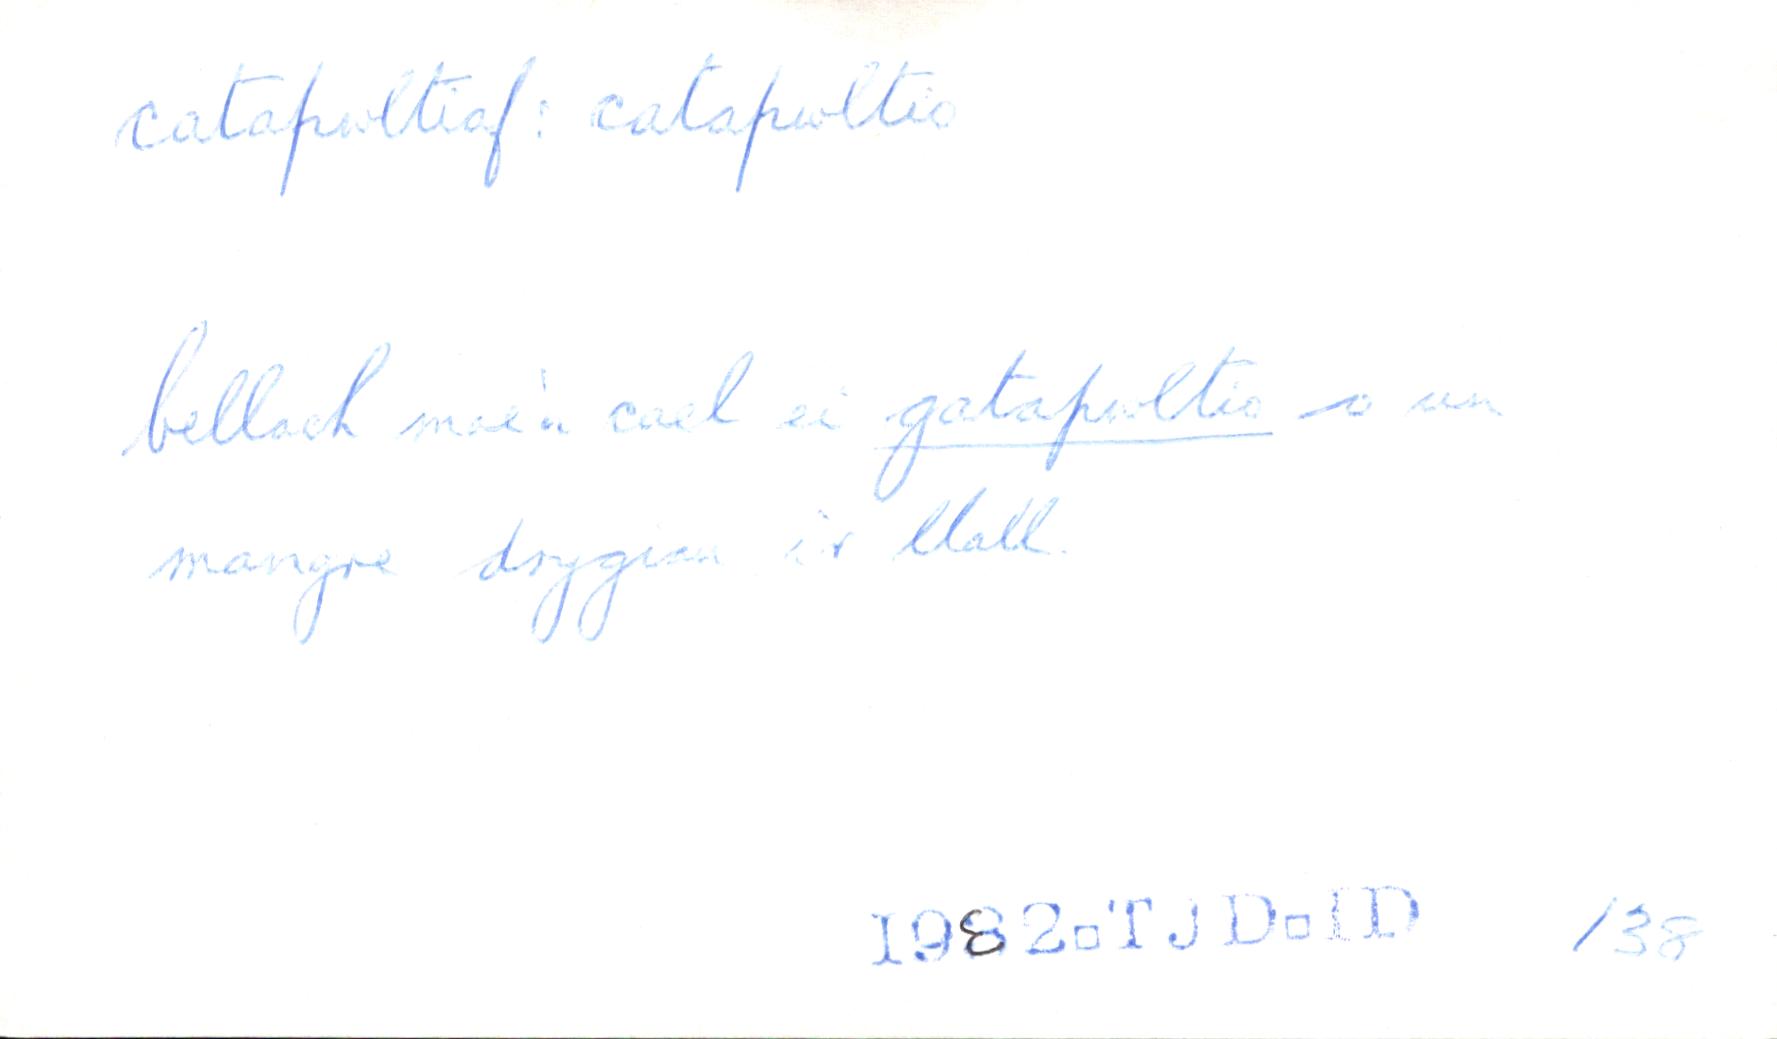 catapwltiaf: catapwltio
bellach mae'n cael ei gatapwltio o un
mangre drygiau i'r llall.
1982 TJD ID /38